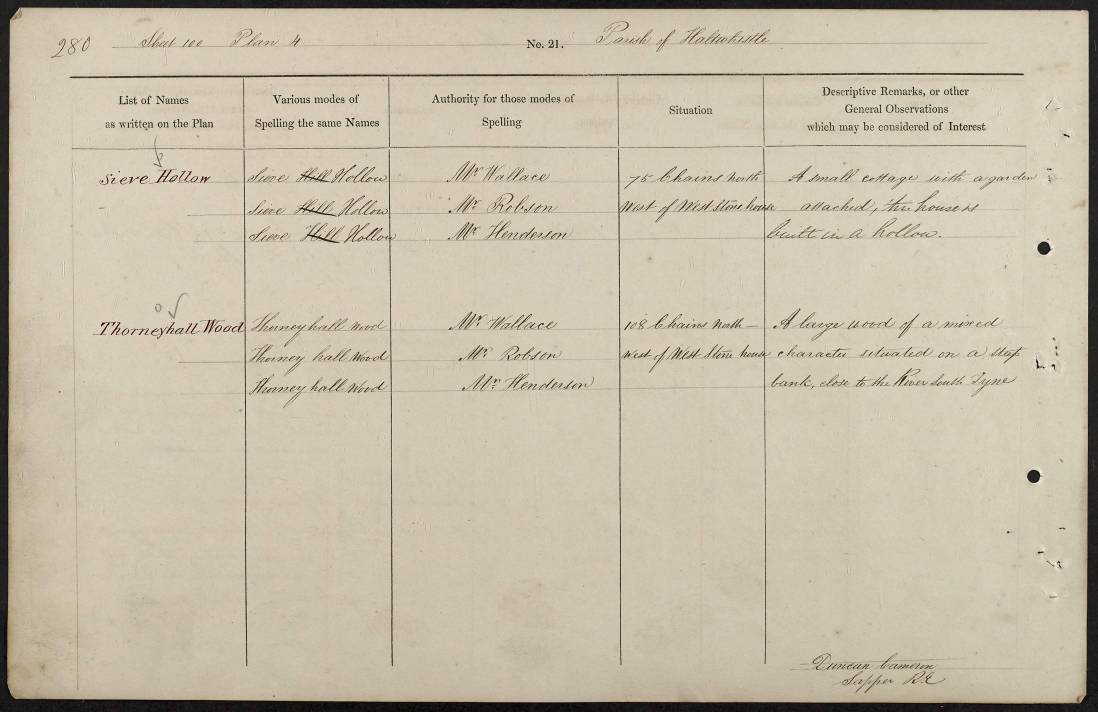 280 Sheet 100 Plan 4 No. 21. Parish of Haltwhistle
List of Names
as written on the Plan
Various modes of
Spelling the same Names
Authority for those modes of
Spelling
Situation
Descriptive Remarks, or other
General Observations
which may be considered of Interest
Sieve Hollow Sieve Hill Hollow Mr Wallace 75 Chains North A small cottage with a garden
Sieve Hill Hollow Mr Robson West of West Stone house attached, the house is
Sieve Hill Hollow Mr Henderson built in a hollow.
Thorneyhall Wood Thorney hall Wood Mr Wallace 108 Chains North – A large wood of a mixed
Thorney hall Wood Mr Robson West of West Stone house character situated on a steep
Thorney hall Wood Mr Henderson bank, close to the River South Tyne
Duncan Cameron
Sapper R.E